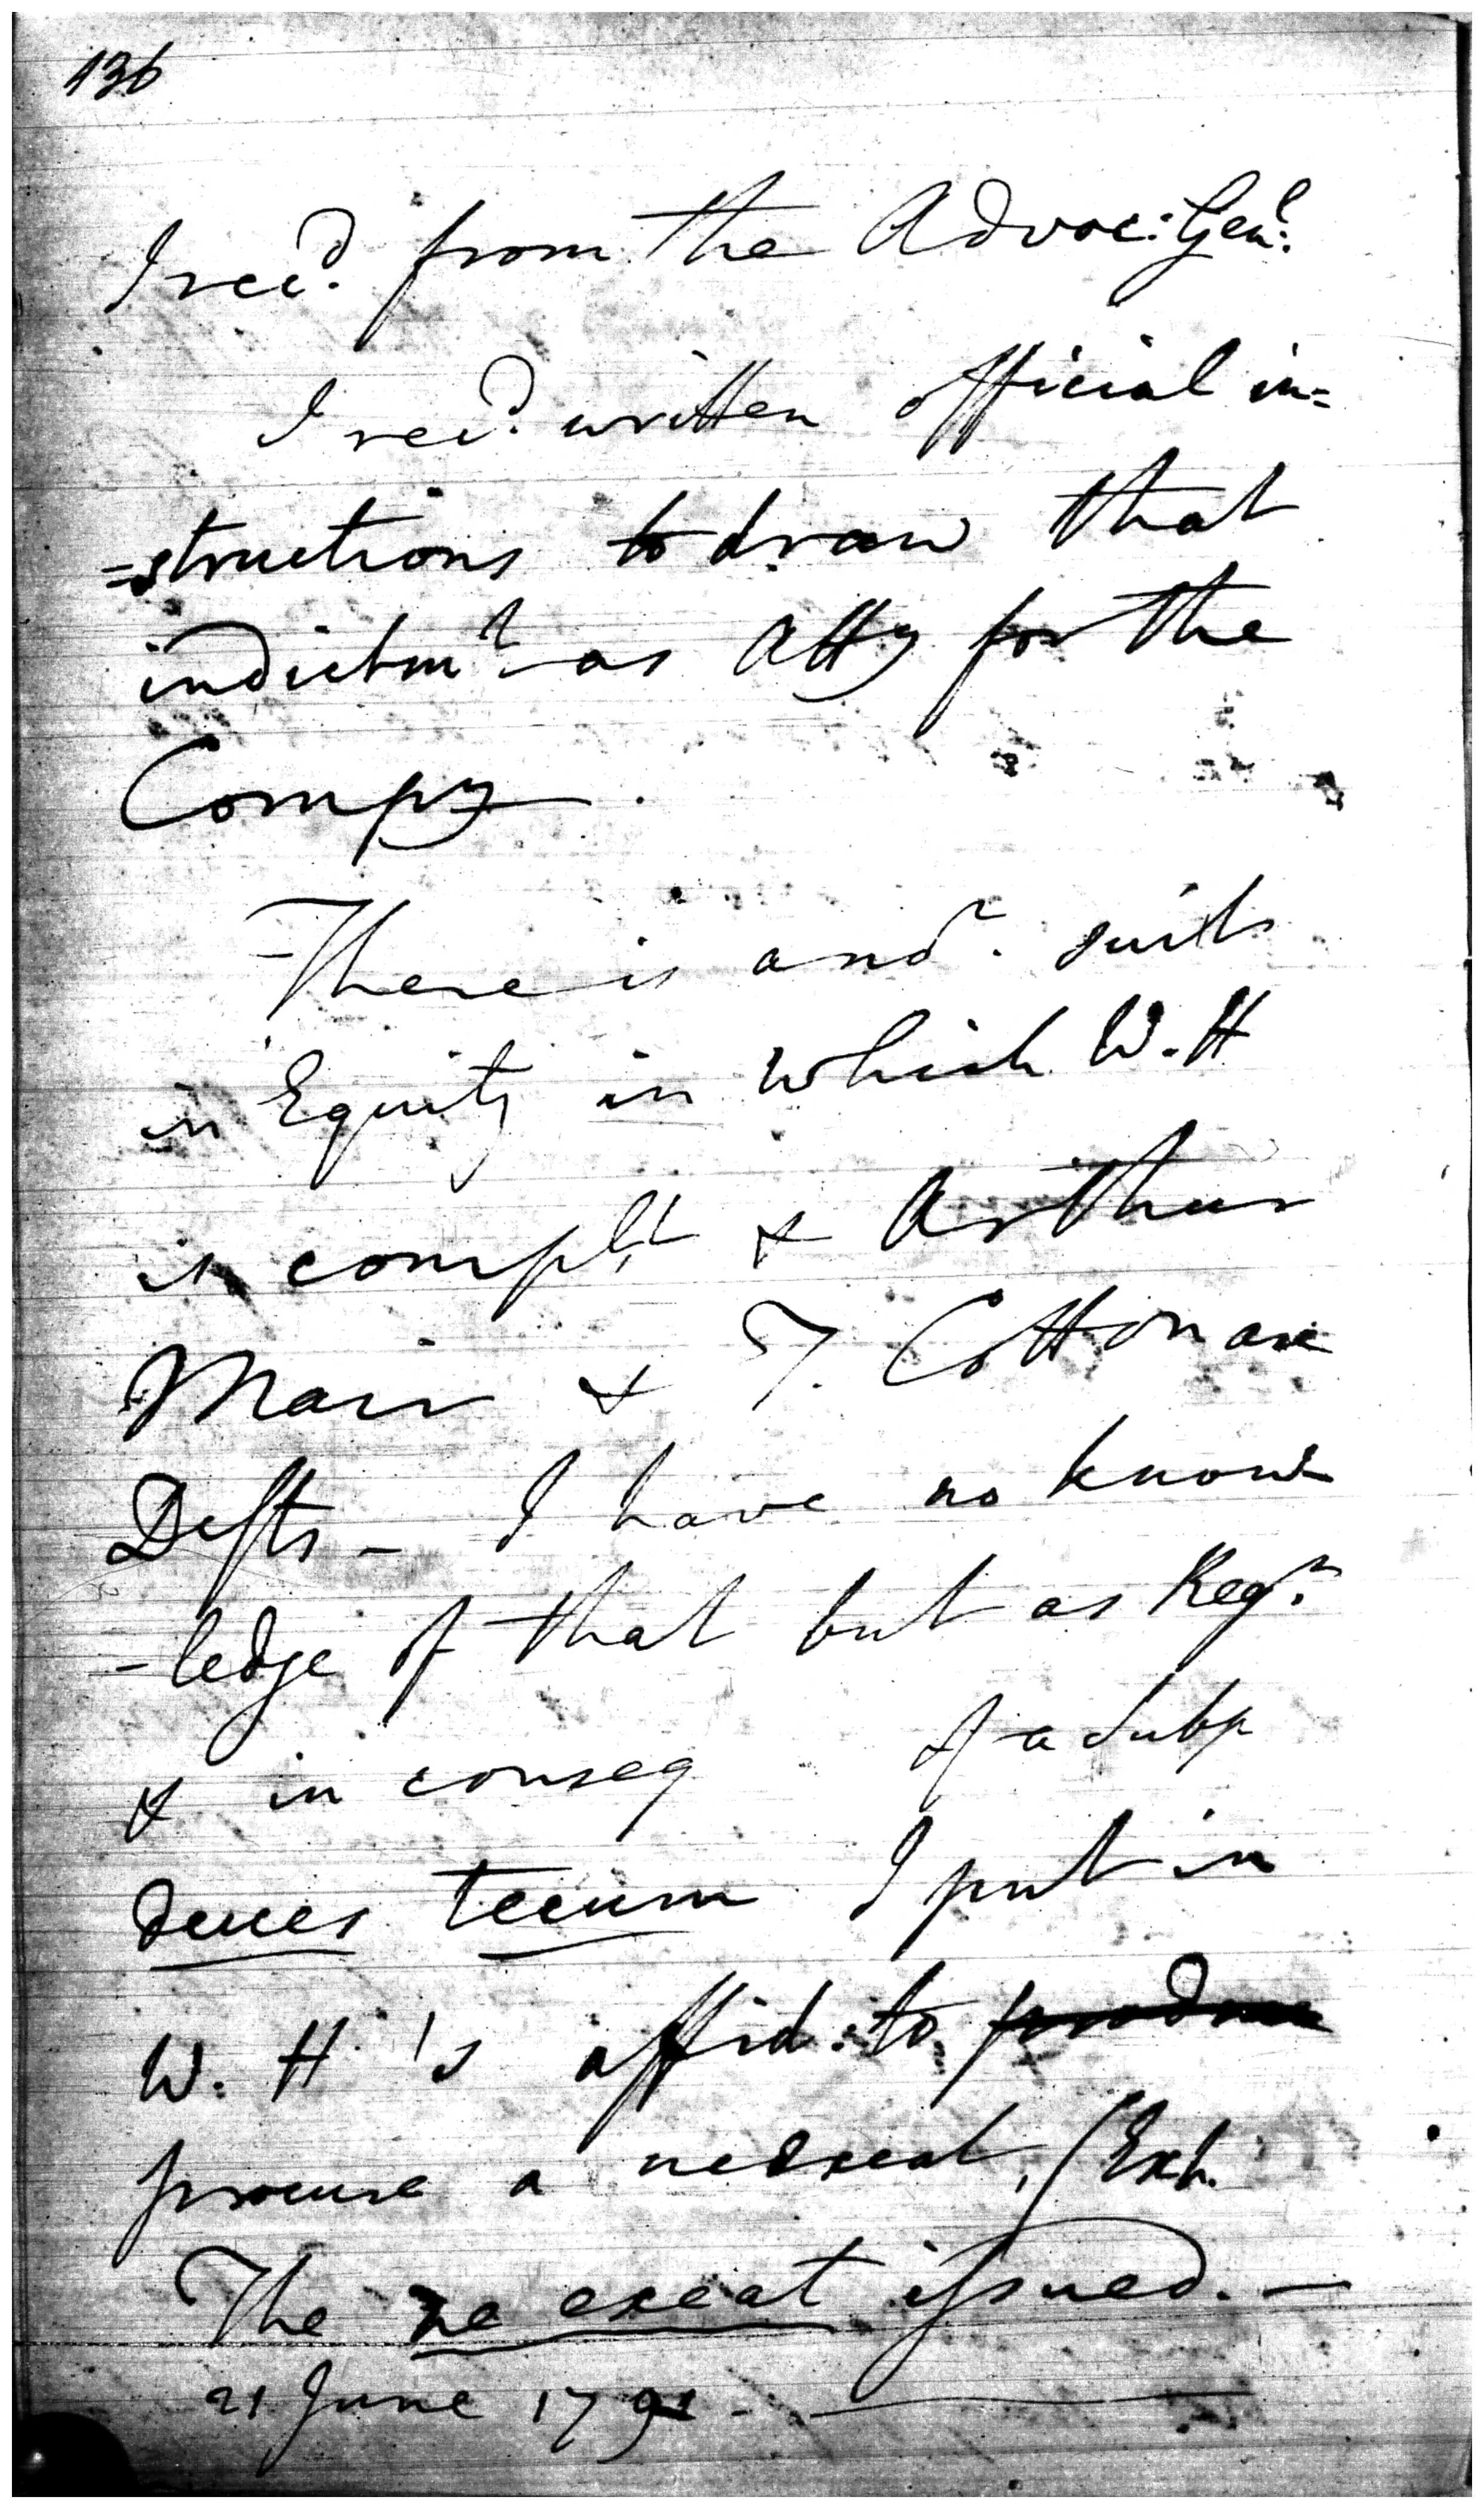 136
I recd. from the Advoc: Genl.
I recd. written official in=
=structions to draw that
indictmt. as Atty for the
Compy.
There is anor. suit
in Equity in which W. H
is complt. & Arthur
Mair & T. Cotton are
Defts - I have no know
-ledge of that but as Regr.
& in conseq of a subp
duces tecum I put in
W. H's affid. to produce
procure a ne exeat, (Exh.
The ne exeat issued. -
21 June 1791 -